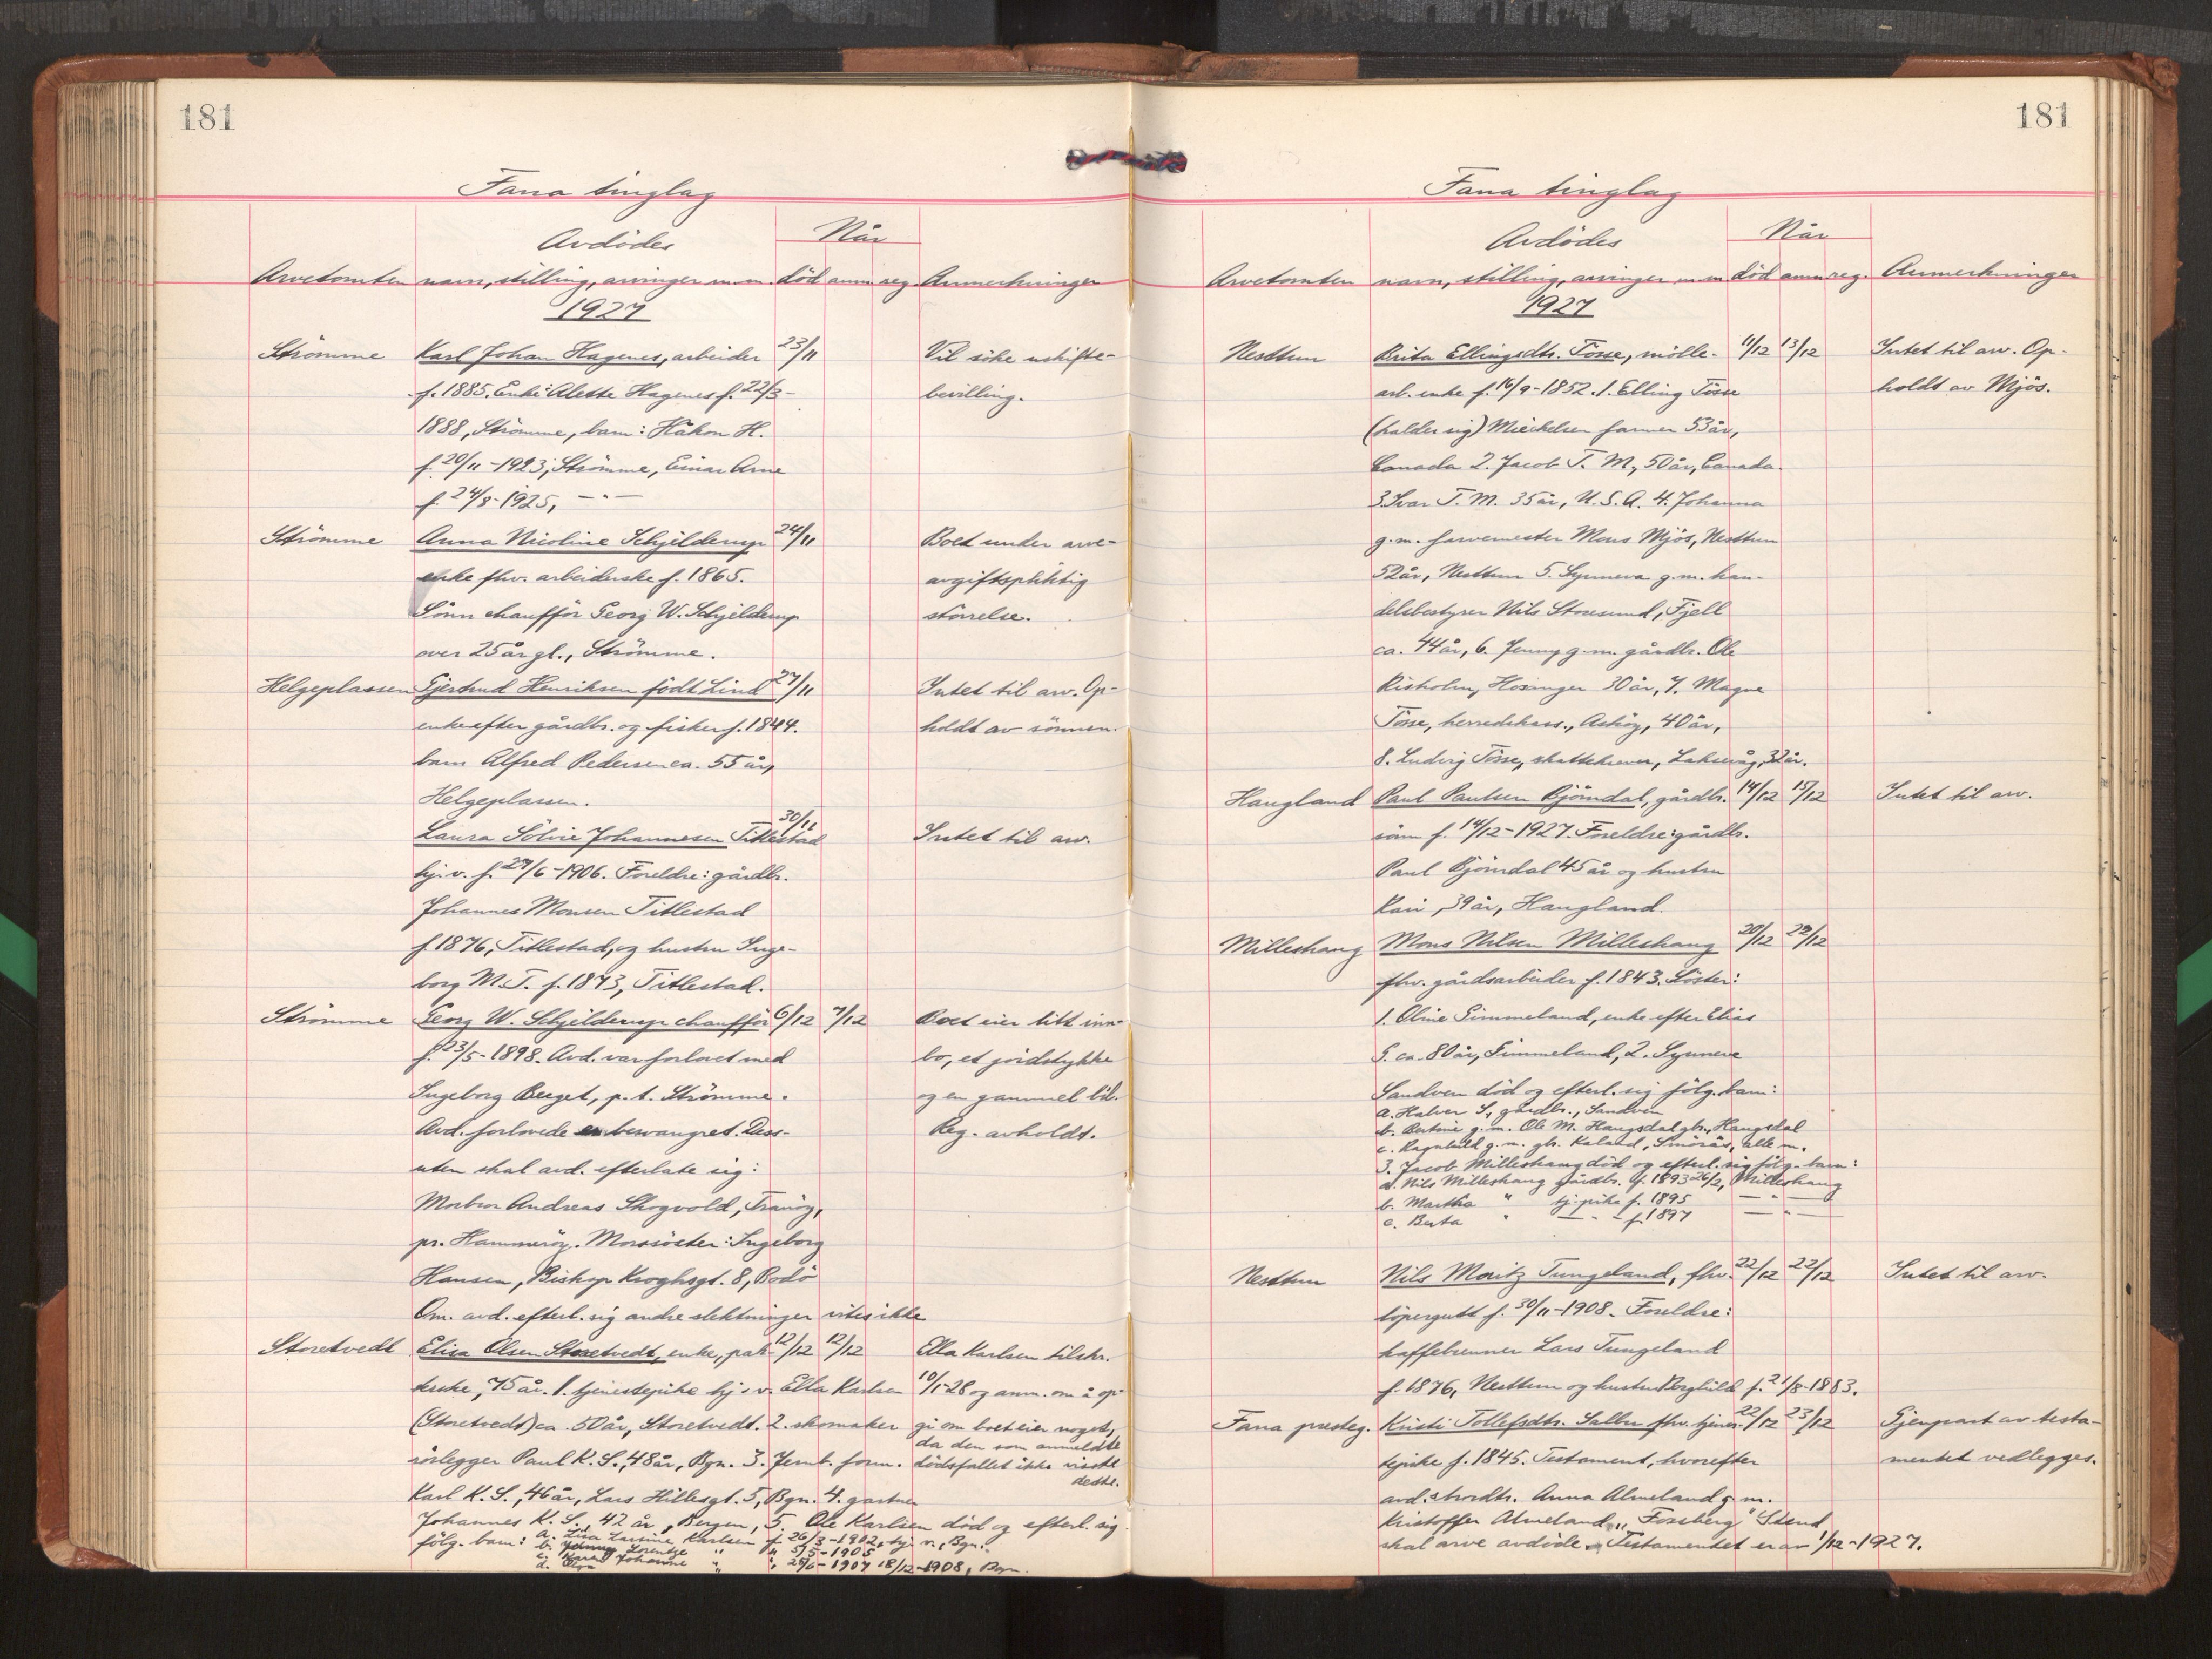 181
Fana tinglag
Avdödes
Når
Arvetomten navn, stilling, arvinger m.m. död anm reg. Anmerkninger
1927
Strömme Karl Johan Hagenes, arbeider 23/11 Vil söke uskifte-
f. 1885. Enke: Alette Hagenes f. 22/3- bevilling.
1888, Strömme, barn: Håkon H.
f. 20/11-1923, Strömme, Einar Arne
f. 24/8-1925, -"-
Strömme Anna Nicoline Schjelderup 24/11 Boet under arve-
enke fhv. arbeiderske f. 1865. avgiftspliktig
Sönn chaufför Georg W. Schjelderup störrelse.
over 25 år gl., Strömme.
Helgeplassen Gjertrud Henriksen födt Lind 27/11 Intet til arv. Op-
enke efter gårdbr. og fisker f. 1844. holdt av sönnen.
barn Alfred Pedersen ca. 55 år,
Helgeplassen.
Laura Sölvie Johannesen Titlestad 30/11 Intet til arv.
hj. v. f. 27/6-1906. Foreldre: gårdbr.
Johannes Monsen Titlestad
f. 1876, Titlestad, og hustru Inge-
borg M. T. f. 1873, Titlestad.
Strömme Georg W. Schjelderup chaufför 6/12 7/12 Boet eier litt inn-
f. 23/5-1898. Avd. var forlovet med bo, et jordstykke
Ingeborg Berget, p.t. Strömme. og en gammel bil.
Avd. forlovede er besvangret. Dess- Reg. avholdt.
uten skal avd. efterlate sig:
Morbror Andreas Skogvold, Tranöy,
pr. Hammeröy. Morssöster: Ingeborg
Hansen, Biskop Kroghsgt. 8, Bodö
Om avd. efterl. sig andre slektninger vites ikke
Storetvedt Elisa Olsen Storetvedt, enke, pak- 12/12 12/12 Ella Karlsen tilskr.
kerske, 75 år. 1. tjenestepike hj. v. Ella Karlsen 10/1-28 og anm. om å op-
(Storetvedt) ca. 50 år, Storetvedt. 2. skomaker gi om boet eier noget,
da den som anmeldte
rörlegger Paul K. S., 48 år, Bgn. 3. Jernb. form. dödsfallet ikke visste
dette.
Karl K. S., 46 år, Lars Hillesgt. 5, Bgn. 4. gartner
Johannes K. S., 42 år, Bergen, 5. Ole Karlsen död og efterl. sig
fölg. barn: a. Lisa Lavine Karlsen f. 26/3-1902, hj. v., Bgn.
b. Jenny Lorentze " " 5/5-1905
c. Karen Johanne " " 25/6-1907
d. Olga 18/12-1908, Bgn.
181
Fana tinglag
Avdödes
Når
Arvetomten navn, stilling, arvinger m.m död anm reg. Anmerkninger
1927
Nesttun Brita Ellingsdtr. Tösse, mölle- 11/12 13/12 Intet til arv. Op-
arb. enke f. 16/9-1852. 1. Elling Tösse holdt av Mjös.
(kalder sig) Mickelsen farmer 53 år,
Canada 2. Jacob T. M., 50 år, Canada.
3. Ivar T. M. 35 år, U.S.A. 4. Johanna
g.m. farvemester Mons Mjös, Nesttun
52 år, Nesttun 5. Synneva g.m. han-
delsbestyrer Nils Storesund, Fjell
ca. 44 år, 6. Jenny g.m. gårdbr. Ole
Risholm, Hosanger 30 år, 7. Magne
Tösse, herredskass., Asköy, 40 år,
8. Ludvig Tösse, skattekrever, Laksevåg, 32 år.
Haugland Paul Paulsen Björndal, gårdbr. 14/12 15/12 Intet til arv.
sönn f. 14/12-1927. Foreldre: gårdbr.
Paul Björndal 45 år og hustru
Kari, 39 år, Haugland.
Milleshaug Mons Nilsen Milleshaug 20/12 22/12
fhv. gårdsarbeider f. 1843. Söster:
1. Oline Simmeland, enke efter Elias
S. ca. 80 år, Simmeland, 2. Synneve
Sandven död og efterl. sig fölg. barn:
a. Halver S., gårdbr., Sandven
b. Bertine g.m. Ole M. Haugsdal gbr., Haugsdal
c. Ragnhild g.m. gbr. Kaland, Smörås, alle m.
3. Jacob Milleshaug död og efterl. sig fölg. barn:
a. Nils Milleshaug gårdbr. f. 1893 26/2, Milleshaug
b. Martha " tj. pike f. 1895 -"-
c. Berta " -"- f. 1897 -"-
Nesttun Nils Moritz Tungeland, fhv. 22/12 22/12 Intet til arv.
löpergutt f. 30/11-1908. Foreldre:
kaffebrenner Lars Tungeland
f. 1876, Nesttun og hustru Borghild f. 21/8-1883.
Fana presteg. Kristi Tollefsdtr. Salbu fhv. tjenes- 22/12 23/12 Gjenpart av testa-
tepike f. 1845. Testament, hvorefter mentet vedlegges.
avd.s brordtr. Anna Almeland g.m.
Kristoffer Almeland, "Fossberg" Stend
skal arve avdöde. Testamentet er av 1/12-1927.